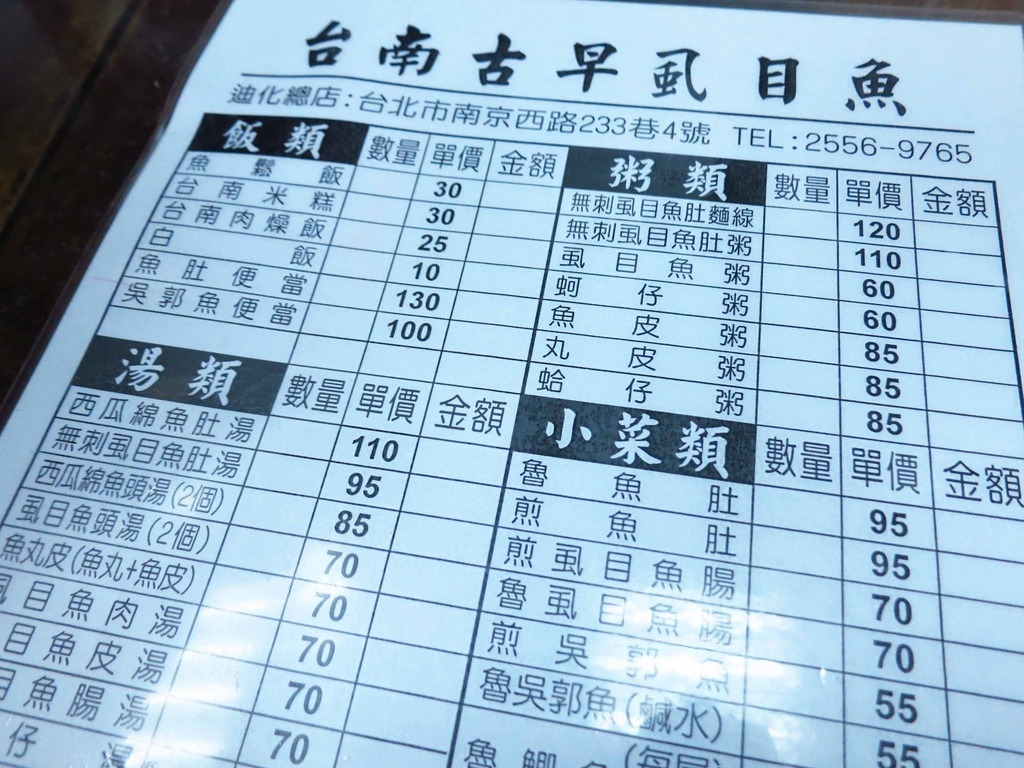 台南古早虱目魚
迪化總店:台北市南京西路233巷4號 TEL:2556-9765
飯類 數量 單價 金額
魚鬆飯 30
台南米糕 30
台南肉燥飯 25
白飯 10
魚肚便當 130
吳郭魚便當 100
湯類 數量 單價 金額
西瓜綿魚肚湯 110
無刺虱目魚肚湯 95
西瓜綿魚頭湯(2個) 85
虱目魚頭湯(2個) 70
魚丸皮(魚丸+魚皮) 70
虱目魚肉湯 70
目魚皮湯 70
目魚腸湯 70
仔湯
粥類 數量 單價 金額
無刺虱目魚肚麵線 120
無刺虱目魚肚粥 110
虱目魚粥 60
蚵仔粥 60
魚皮粥 85
丸皮粥 85
蛤仔粥 85
小菜類 數量 單價 金額
魯魚肚 95
煎魚肚 95
煎虱目魚腸 70
魯虱目魚腸 70
煎吳郭魚 55
魯吳郭魚(鹹水) 55
魯鯽魚(每尾)